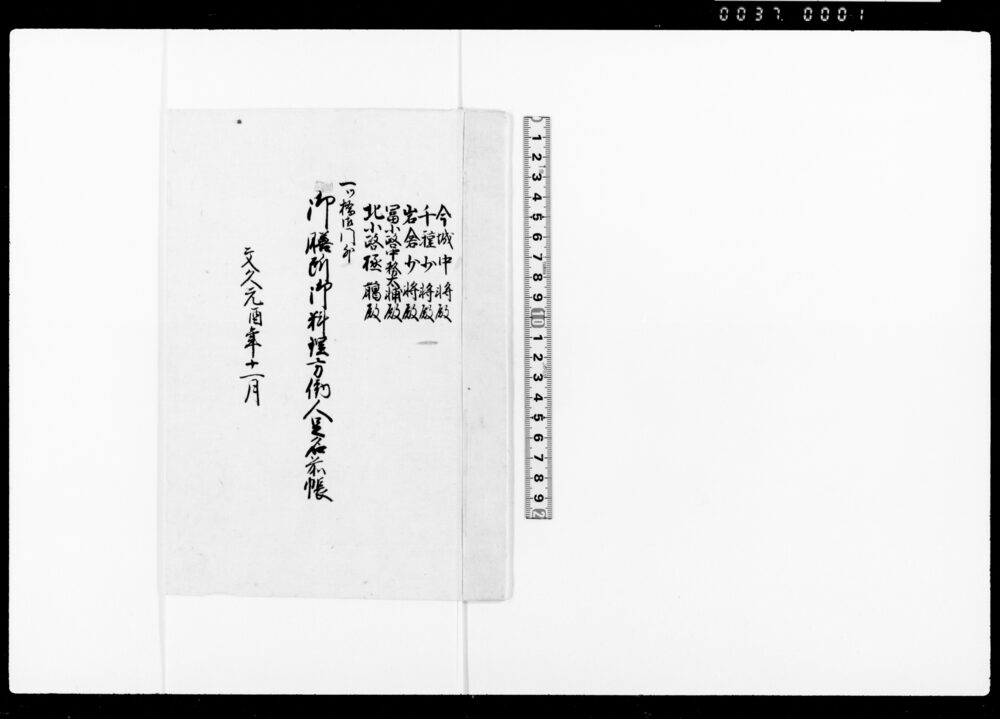 0037 0001
今城中将殿
千種少将殿
岩倉少将殿
冨小路中務大輔殿
北小路極﨟殿
一ツ橋御門外
御膳所御料理方働人足名前帳
文久元酉年十一月
1 2 3 4 5 6 7 8 9 10 1 2 3 4 5 6 7 8 9 2